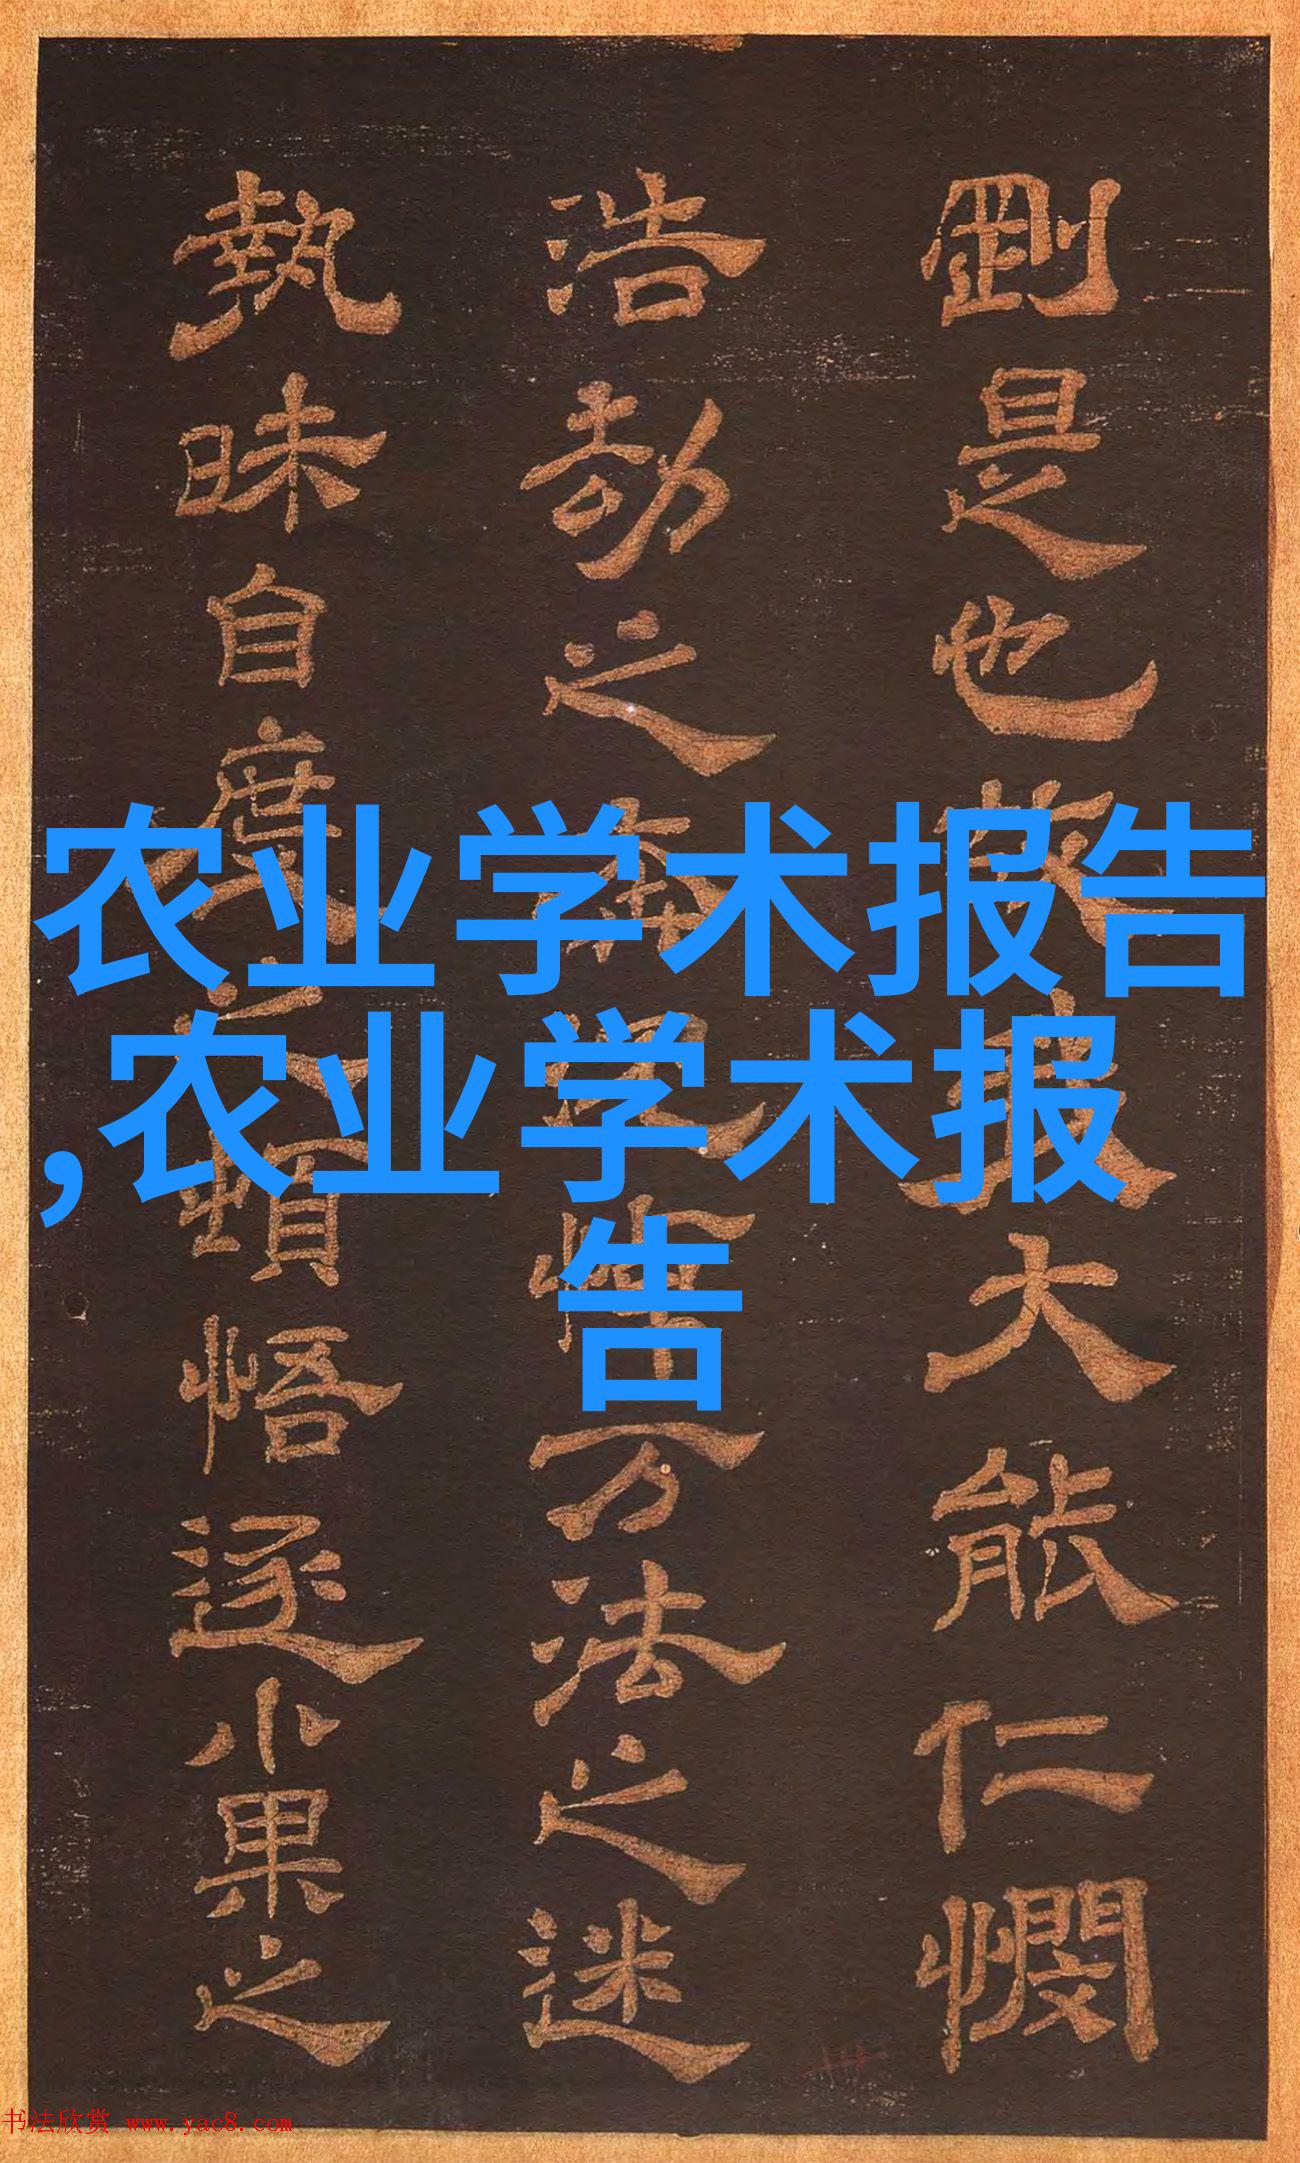 剛是也大能仁憫
浩劫之万法之迷
執昧自度之頓悟逐小果之
农业学术报告
,农业学术报
告
书法欣赏 www.yac8.com